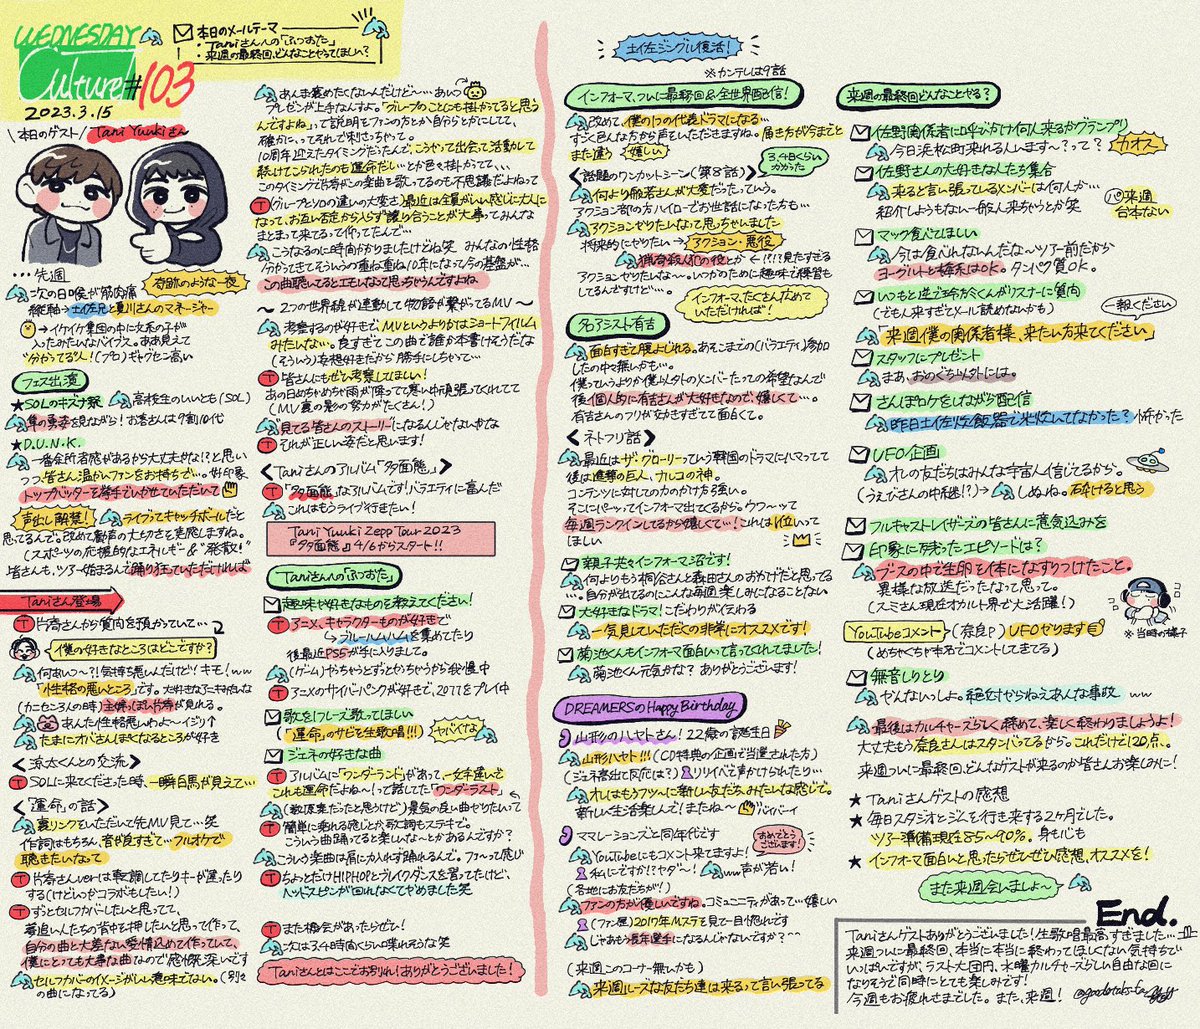 WEDNESDAY
Culture #103
2023.3.15
本日のメールテーマ
・Taniさんへの「ふつおた」
・来週の最終回、どんなことやってほしい？
\本日のゲスト/ Tani Yuukiさん
…先週
奇跡のような一夜
次の日喉が筋肉痛
→イケイケ集団の中に文系の子が
入ったみたいなバイブス。
フェス出演
★SOLのキズナ祭
高校生のいいとも(SOL)
隼の勇姿を見ながら！お客さんは9割10代
★D.U.N.K.
つつ、皆さん温かいファンをお持ちで…。好印象
トップバッターを勝手でいかせていただいて
声出し解禁！
ライブってキャッチボールだと
思ってるんで。改めて歓声の大切さを実感しますね。
(スポーツの応援的なエネルギー＆"発散")
皆さんも、ツアー始まるんで踊り狂っていただければ
Taniさん登場
片寄さんから質問を預かっていて…
僕の好きなところはどこですか？
何それ〜?!気持ち悪いんだけど！キモ！ww
「性格の悪いところ」です。
あんた性格悪いわよ〜イジり
たまにオバさんぽくなるところが好き
〈涼太くんとの交流〉
SOLに来てくださった時、一瞬白馬が見えて…
〈「運命」の話〉
裏リンクをいただいて先MV見て…笑
作詞はもちろん、音が良すぎて…フルオケで
聴きたいなって
片寄さんverは転調してたりキーが違ったり
する(けどいつかコラボもしたい！)
ずっとセルフカバーしたいと思ってて、
自分の曲と大差ない愛情込めて作っていて、
僕にとっても大事な曲なので感慨深いです
セルフカバーのイメージがいい意味でない。(別々
の曲になってる)
あんま褒めたくないんだけど…あいつ
プレゼンが上手なんすよ。「グループのことにも掛かってると思う
んですよね」って説明をファンの方とか自分らとかにしてて、
確かにってそれで刺さっちゃって。
10周年迎えたタイミングだったんで、こうやって出会って活動して
続けてこられたのも運命だし…とか色々掛かってて、、、
このタイミングで片寄がこの楽曲を歌ってるのも不思議だよねって
(グループとソロの違いの大変さ)最近は全員がいい感じに大人に
なって、お互い否定から入らず譲り合うことが大事ってみんな
まとまって来てるって作ってたんで…
こうなるのに時間かかりましたけどね笑 みんなの性格
分かってきてそういうの重ね重ね10年になって今の基盤が…
この曲聴いてるとエモいなって思っちゃうんですよね
〜2つの世界線が連動して物語が繋がってるMV〜
考察するのが好きで、MVというよりかはショートフィルム
みたいな。良すぎてこの曲で誰か本書けそうだな
(そういう)妄想好きだから勝手にしちゃって…
皆さんにもぜひ考察してほしい！
あの日めちゃめちゃ雨が降ってて寒い中頑張ってくれてて
(MV裏の影の努力がたくさん！)
見てる皆さんのストーリーになるんじゃないかな
それが正しい姿だと思います！
〈Taniさんのアルバム「多面態」〉
「多面態」なアルバムです！バラエティに富んだ
これはもうライブ行きたい！
Tani Yuuki Zepp Tour 2023
『多面態』4/6からスタート!!
Taniさんへの「ふつおた」
趣味や好きなものを教えてください！
アニメ、キャラクターものが好きで
後最近PS5が手に入りまして。
(ゲーム)やっちゃうとずっとやっちゃうから我慢中
アニメのサイバーパンクが好きで、2077をプレイ中
歌を1フレーズ歌ってほしい
(「運命」のサビを生歌唱!!!)
ヤバイな
ジェネの好きな曲
アルバムに「ワンダーランド」があって、一文字違いで
これも運命だよね〜！って話してた「ワンダーラスト」
(教原案だったと思うけど)景気の良い曲やりたいって
簡単に乗れる感じとか歌詞もステキで。
こういう曲踊ってると楽しいな〜とかあるんですか？
こういう楽曲は肩に力入れず踊れるんで。ファ〜って感じ
ちょっとだけHIPHOPとブレイクダンスを習ってたけど、
ヘッドスピンが回れなくてやめました笑
また機会があったらぜひ！
次は3,4時間くらいの集れそうな笑
Taniさんとはここでお別れ！ありがとうございました！
土佐ジングル復活！
※カンテレは9話
インフォーマ、ついに最終回＆全世界配信！
改めて、僕の1つの代表ドラマになる…
すごく色んな方から声をいただきますね。届き方が今までと
また違う
嬉しい
〈話題のワンカットシーン(第8話)〉
3,4日くらい
かかった
何より般若さんが大変だったっていう。
アクション部の方ハイローでお世話になった方も…
アクションやりたいなって思っちゃいました
将来的にやりたい→アクション・悪役
猟奇殺人犯の役とか←!?!?見たすぎる
アクションやりたいな〜。いつかのために趣味で練習も
してるんですけど…。
インフォーマ、たくさん広めて
いただければ！
名アシスト有吉
面白すぎて腹よじれる。あそこまでの(バラエティ)参加
したの中々無いかも…。
僕っていうより僕以外のメンバーたっての希望なんで
後個人的に有吉さんが大好きなんで、嬉しくて…。
有吉さんのフリが雑すぎて面白くて。
〈ネトフリ話〉
最近はザ・グローリーっていう韓国のドラマにハマってて
後は進撃の巨人、ナルコの神。
コンテンツに対しての力のかけ方強い。
そこにバーッてインフォーマ出てくるから。ウワ〜ッて
毎週ランクインしてるから嬉しくて…！これは1位いって
ほしい
親子共々インフォーマ沼です！
何よりもう桐谷さんと森田さんのおかげだと思ってる
…。自分が出てるのにこんな毎週楽しみになることない
大好きなドラマ！こだわりが伝わる
一気見していただくの非常にオススメです！
菊池くんもインフォーマ面白いって言ってくれてました！
菊池くん元気かな？ありがとうございます！
DREAMERSのHappy Birthday
山形のハヤトさん！22歳の誕生日
山形ハヤト!!!(CD特典の企画で当選された方)
オレはもうフツーに新しい友だちみたいな感じで。
新しい生活楽しんで！またね〜バイバーイ
ママレーションズと同年代です
おめでとう
ございます！
YouTubeにもコメント来てますよ！
私にですか!?ヤダ〜！ww声が若い！
(各地にお友だちが！)
ファンの方が優しいですね。コミュニティがあって…嬉しい
(ファン歴)2017年Mステを見て一目惚れです
じゃあもう長年選手になるんじゃないですか？
(来週このコーナー無いかも)
来週ルーズな友だち達は来るって言い張ってる
来週の最終回どんなことやる？
佐野関係者に呼びかけ何人来るかグランプリ
今日浜松町来れる人います〜？って？
カオス
佐野さんの大好きなひとたち集合
来ると言い張っているメンバーは何人か…
紹介しようもない一般人来ちゃうとか笑
来週
台本ない
マック食べてほしい
今は食べれないんだな〜ツアー前だから
ヨーグルトと梅系はOK。タンパク質OK。
いつもと逆で玲於くんがリスナーに質問
(でも人来すぎてメール読めないかも)
一報ください
「来週僕の関係者様、来たい方来てください」
スタッフにプレゼント
まあ、おのぐち以外には。
さんぽカケをしながら配信
昨日土佐炊飯器で米炊いてなかった？怖かった
UFO企画
オレの友だちはみんな宇宙人信じてるから。
(うえびさんの中継!?)→しぬね。砕けると思う
フルキャストレイザーズの皆さんに意気込みを
印象に残ったエピソードは？
ブースの中で生卵を体になすりつけたこと。
異様な放送だったなって思って。
(スミさん現在オカルト界で大活躍！)
YouTubeコメント(奈良P)UFOやります
※当時の様子
(めちゃくちゃ本名でコメントしてきてる)
無音しりとり
やんないっしょ。絶対やらねえあんな事故 ww
最後はカルチャーズらしく締めて、楽しく終わりましょうよ！
大丈夫もう奈良さんはスタンバってるから。これだけで120点。
来週ついに最終回、どんなゲストが来るのか皆さんお楽しみに！
★Taniさんゲストの感想
★毎日スタジオとジムを行き来する2ヶ月でした。
ツアー準備現在85〜90%。身も心も
★インフォーマ面白いと思ったらぜひぜひ感想、オススメを！
また来週会いましょ〜
End.
Taniさんゲストありがとうございました！生歌唱最高すぎました…
来週ついに最終回、本当に本当に終わってほしくない気持ちで
いっぱいですが、ラスト大団円、水曜カルチャーズらしい自由な回に
なりそうで同時にとても楽しみです！
今週もお疲れさまでした。また、来週！